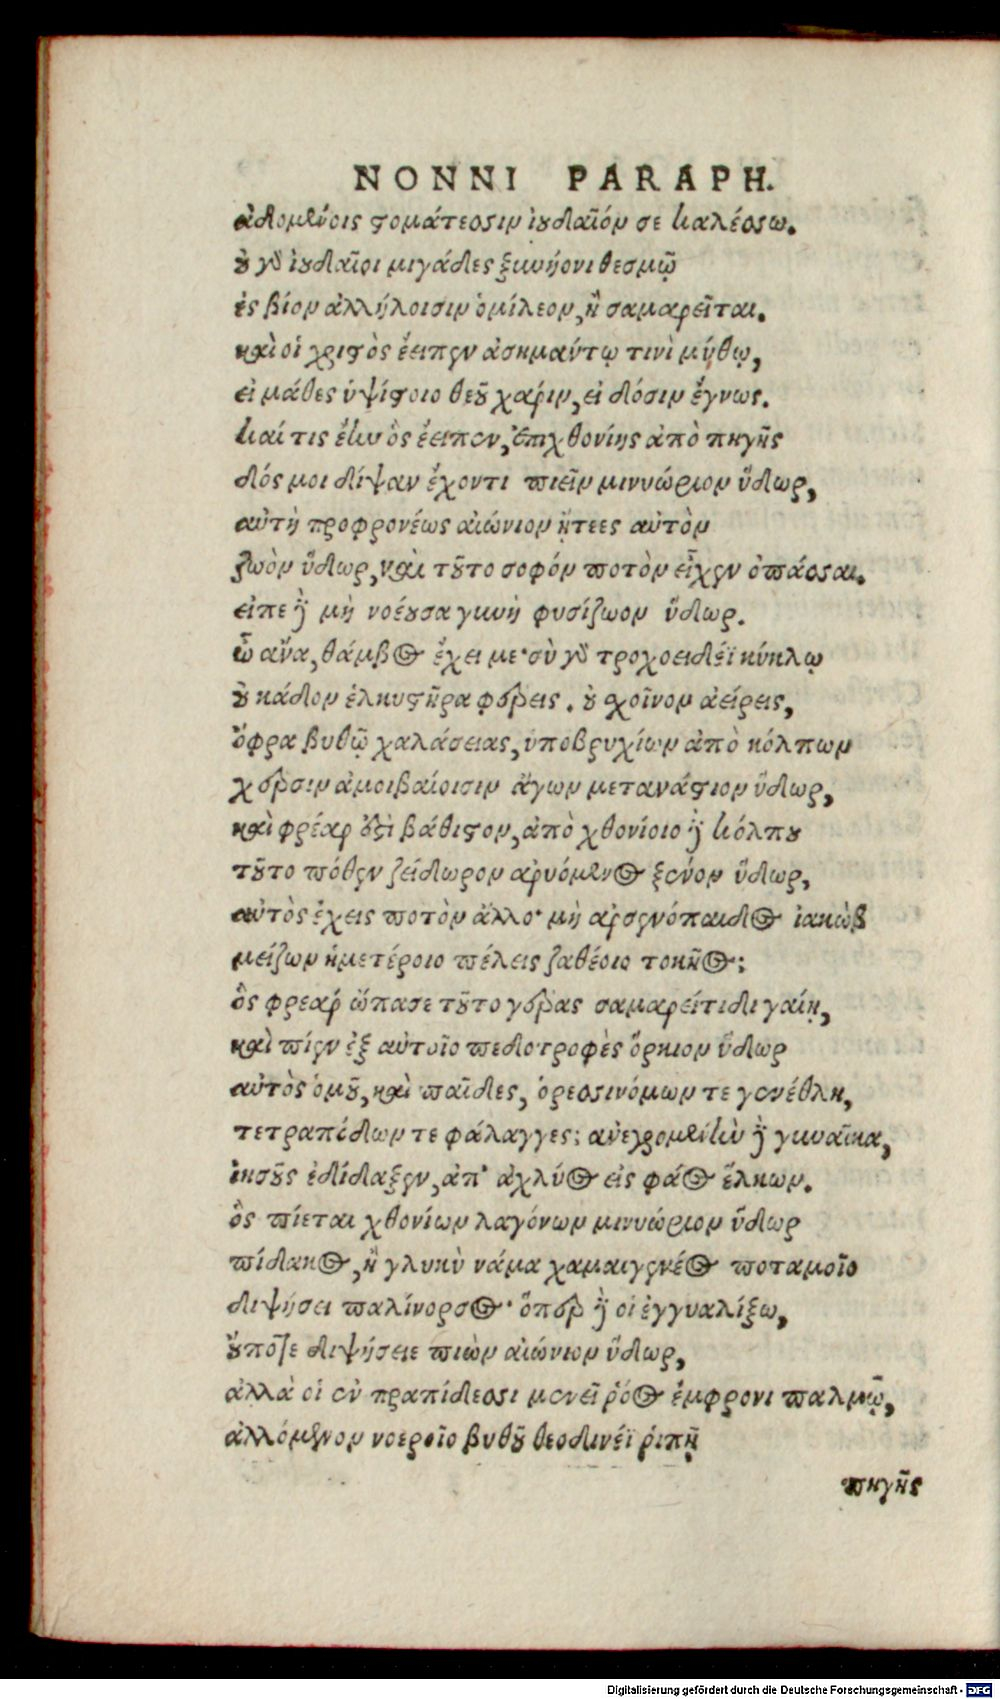 NONNI PARAPH.
ἀδομένοις στομάτεσσιν ἰουδαῖόν σε καλέσσω.
οὐ γὰρ ἰουδαῖοι μιγάδες ξυνήονι θεσμῷ
ἐς βίον ἀλλήλοισιν ὁμίλεον, ἢ σαμαρεῖται.
καὶ οἱ χριστὸς ἔειπεν ἀσημαύτῳ τινὶ μύθῳ,
εἰ μάθες ὑψίστοιο θεοῦ χάριν, εἰ δόσιν ἔγνως.
καί τις ἔην ὃς ἔειπεν, ἐπιχθονίης ἀπὸ πηγῆς
δός μοι δίψαν ἔχοντι πιεῖν μινυώριον ὕδωρ,
αὐτὴ προφρονέως αἰώνιον ᾔτεες αὐτὸν
ζωὸν ὕδωρ, καὶ τοῦτο σοφόν ποτὸν εἶχεν ὀπάσσαι.
εἶπε δὲ μὴ νοέουσα γυνὴ φυσίζωον ὕδωρ.
ὦ ἄνα, θάμβος ἔχει με· σὺ γὰρ τροχοειδέϊ κύκλῳ
οὐ κάδον ἑλκυστῆρα φέρεις. οὐ σχοῖνον ἀείρεις,
ὄφρα βυθῷ χαλάσειας, ὑποβρυχίων ἀπὸ κόλπων
χερσὶν ἀμοιβαίοισιν ἄγων μετανάστιον ὕδωρ,
καὶ φρέαρ ἐστὶ βάθιστον, ἀπὸ χθονίοιο δὲ κόλπου
τοῦτο πόθεν ζείδωρον ἀρυόμενος ξένον ὕδωρ,
αὐτὸς ἔχεις ποτὸν ἄλλο· μὴ ἀρσενόπαιδος ἰακὼβ
μείζων ἡμετέροιο πέλεις ζαθέοιο τοκῆος;
ὃς φρεαρ ὤπασε τοῦτο γέρας σαμαρείτιδι γαίῃ,
καὶ πίεν ἐξ αὐτοῖο πεδοτροφὲς ὅρκιον ὕδωρ
αὐτὸς ὁμοῦ, καὶ παῖδες, ὀρεσσινόμων τε γενέθλη,
τετραπέδων τε φάλαγγες; ἀνειρομένην δὲ γυναῖκα,
ἰησοῦς ἐδίδαξεν, ἀπ' ἀχλύος εἰς φάος ἕλκων.
ὃς πίεται χθονίων λαγόνων μινυώριον ὕδωρ
πίδακος, ἢ γλυκὺ νάμα χαμαιγενέος ποταμοῖο
διψήσει παλίνορσος· ὅπερ δέ οἱ ἐγγυαλίξω,
οὔποτε διψήσειε πιὼν αἰώνιον ὕδωρ,
ἀλλὰ οἱ ἐν πραπίδεσσι μενεῖ ῥόος ἔμφρονι παλμῷ,
ἀλλόμενον νοεροῖο βυθοῦ θεοδινέϊ ῥιπῇ
πηγῆς
Digitalisierung gefördert durch die Deutsche Forschungsgemeinschaft - DFG